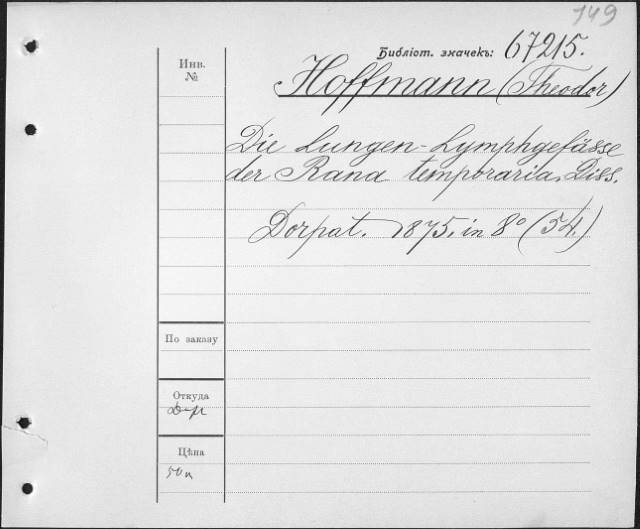 149
Библіот. значекъ: 67215.
Инв.
№
Hoffmann (Theodor)
Die Lungen-Lymphgefässe
der Rana temporaria. Diss.
Dorpat. 1875. in 8° (54.)
По заказу
Откуда
Цѣна
50 к